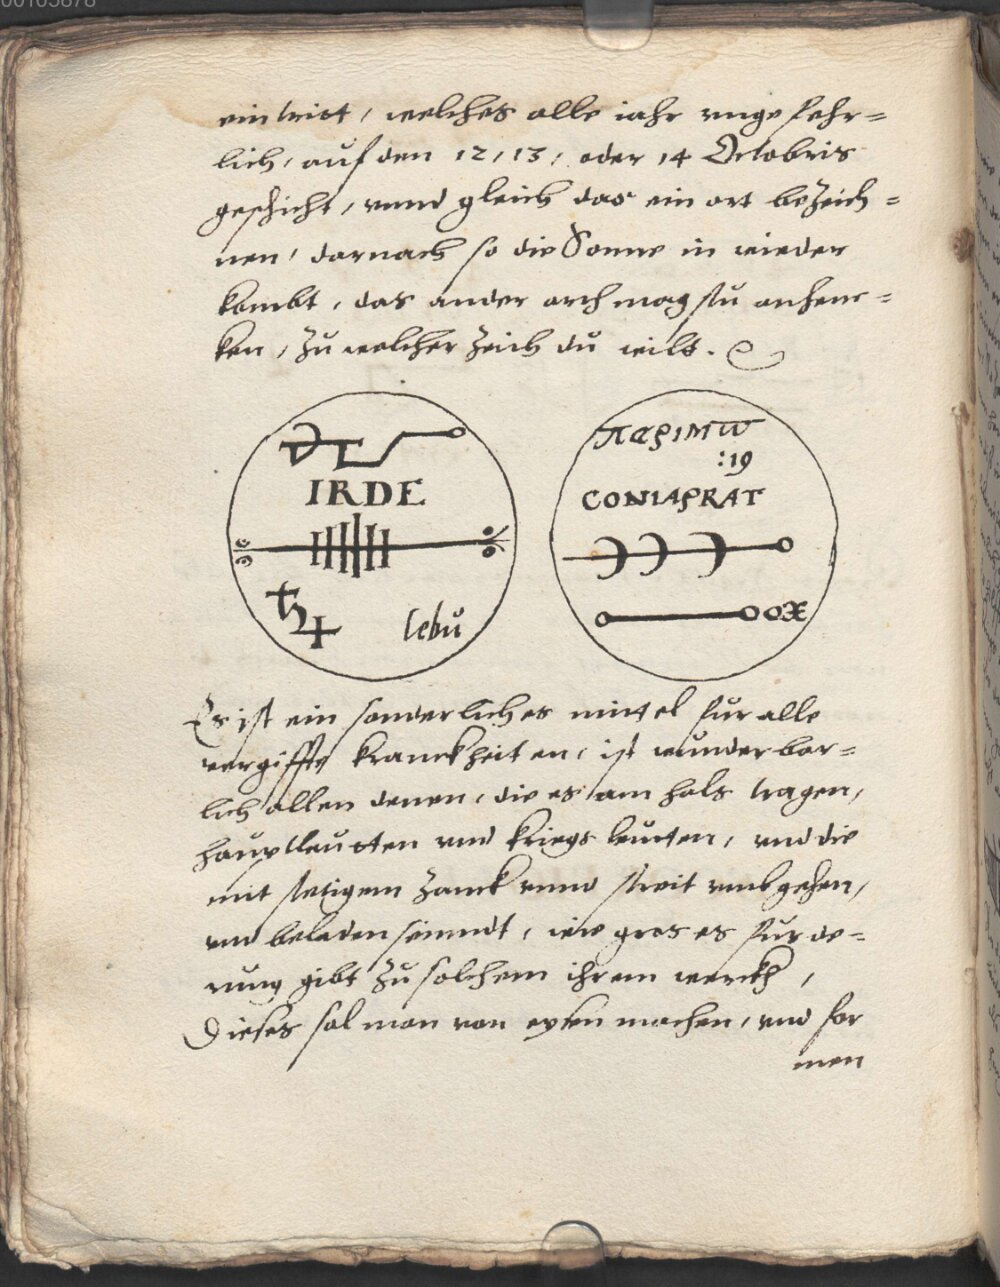 00105878
eintritt, welches alle iahr ungefehr=
lich, auf den 12, 13, oder 14 Octobris
geschicht, unnd gleich das ein ort bezeich=
nen, darnach so die Sonne in wieder
kombt, das ander auch magstu anhenc=
ken, zu welcher Zeich du wilt.
IRDE
lebŭ
:19
CONIAPRAT
Es ist ein sonderliches mittel für alle
vergiffte kranckheiten, ist wunderbar=
lich allen denen, die es am hals tragen,
hauptleutten und kriegsleutten, und die
mit stetigem Zanck unnd streit umbgehen,
und beladen seinndt, wie gros es für de=
rung gibt zu solchem ihrem werckh,
Dieses sol man von eysen machen, und for
men